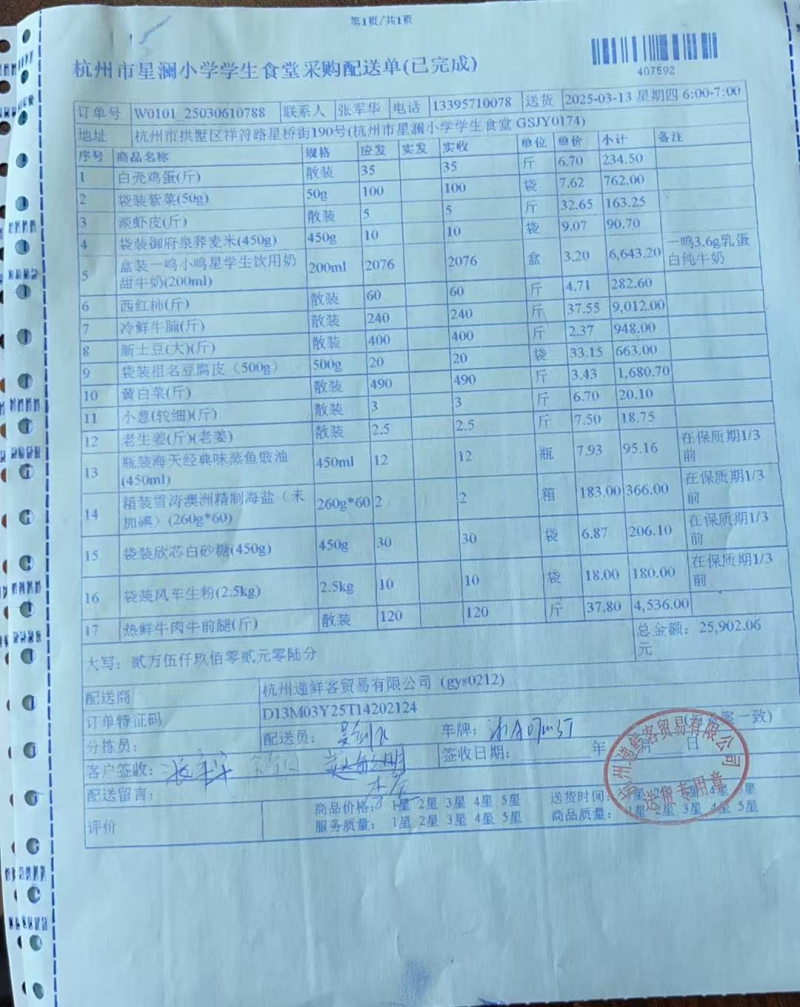 第1页/共1页
杭州市星澜小学学生食堂采购配送单(已完成)
407592
订单号 W0101_25030610788 联系人 张军华 电话 13395710078 送货 2025-03-13 星期四 6:00-7:00
地址 杭州市拱墅区祥符路星桥街190号(杭州市星澜小学学生食堂 GSJY0174)
序号 商品名称 规格 应发 实发 实收 单位 单价 小计 备注
1 白壳鸡蛋(斤) 散装 35 35 斤 6.70 234.50
2 袋装紫菜(50g) 50g 100 100 袋 7.62 762.00
3 淡虾皮(斤) 散装 5 5 斤 32.65 163.25
4 袋装御府泉荞麦米(450g) 450g 10 10 袋 9.07 90.70
5 盒装一鸣小鸣星学生饮用奶甜牛奶(200ml) 200ml 2076 2076 盒 3.20 6,643.20 一鸣3.6g乳蛋白纯牛奶
6 西红柿(斤) 散装 60 60 斤 4.71 282.60
7 冷鲜牛腩(斤) 散装 240 240 斤 37.55 9,012.00
8 新土豆(大)(斤) 散装 400 400 斤 2.37 948.00
9 袋装祖名豆腐皮（500g） 500g 20 20 袋 33.15 663.00
10 黄白菜(斤) 散装 490 490 斤 3.43 1,680.70
11 小葱(较细)(斤) 散装 3 3 斤 6.70 20.10
12 老生姜(斤)(老姜) 散装 2.5 2.5 斤 7.50 18.75
13 瓶装海天经典味蒸鱼豉油(450ml) 450ml 12 12 瓶 7.93 95.16 在保质期1/3前
14 箱装雪涛澳洲精制海盐（未加碘）(260g*60) 260g*60 2 2 箱 183.00 366.00 在保质期1/3前
15 袋装欣芯白砂糖(450g) 450g 30 30 袋 6.87 206.10 在保质期1/3前
16 袋装风车生粉(2.5kg) 2.5kg 10 10 袋 18.00 180.00 在保质期1/3前
17 热鲜牛肉牛前腿(斤) 散装 120 120 斤 37.80 4,536.00
大写: 贰万伍仟玖佰零贰元零陆分 总金额: 25,902.06元
配送商 杭州递鲜客贸易有限公司 (gys0212)
订单特征码 D13M03Y25T14202124
分拣员: 配送员: 车牌: 案一致)
客户签收: 签收日期: 年 月 日
配送留言:
评价 商品价格: 1星 2星 3星 4星 5星 送货时间: 1星 2星 3星 4星 5星
服务质量: 1星 2星 3星 4星 5星 商品质量: 1星 2星 3星 4星 5星
杭州递鲜客贸易有限公司
送货专用章